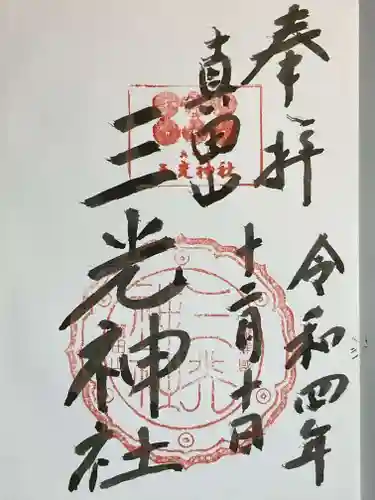 奉拝
令和四年
十二月十日
真田山
三光神社
三光神社